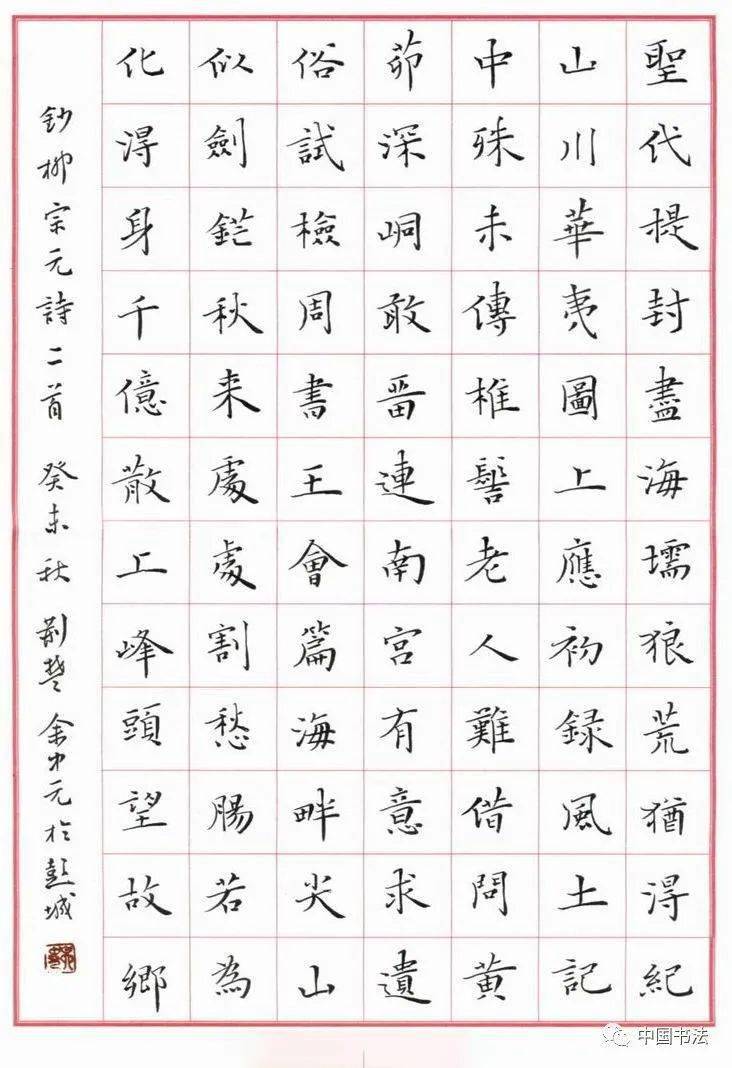 聖代提封盡海壖狼荒猶得紀
山川華夷圖上應初録風土記
中殊未傳椎髻老人難借問黄
茆深峒敢畱連南宮有意求遺
俗試檢周書王會篇海畔尖山
似劍鋩秋来處處割愁腸若為
化得身千億散上峰頭望故鄉
鈔柳宗元詩二首 癸未秋 荆楚 余中元於彭城
中国书法